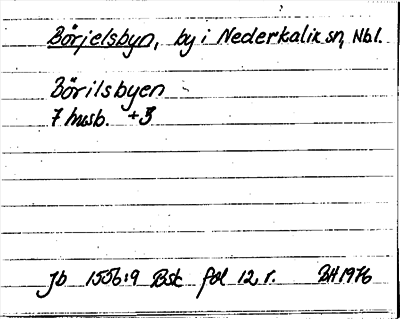 Börjelsbyn, by i Nederkalix sn, Nbl.
Börilsbyen
7 husb. +3
Jb 1556:9 Bsk fol 12 r. BH 1976